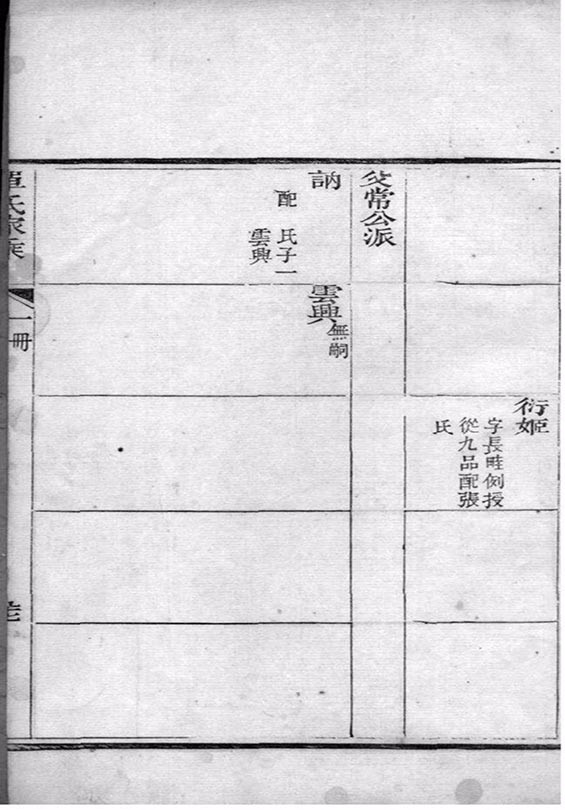 衍姬
字長畦例授
從九品配張
氏
父常公派
訥
配 氏子一
雲興
雲興
無嗣
氏家
一冊